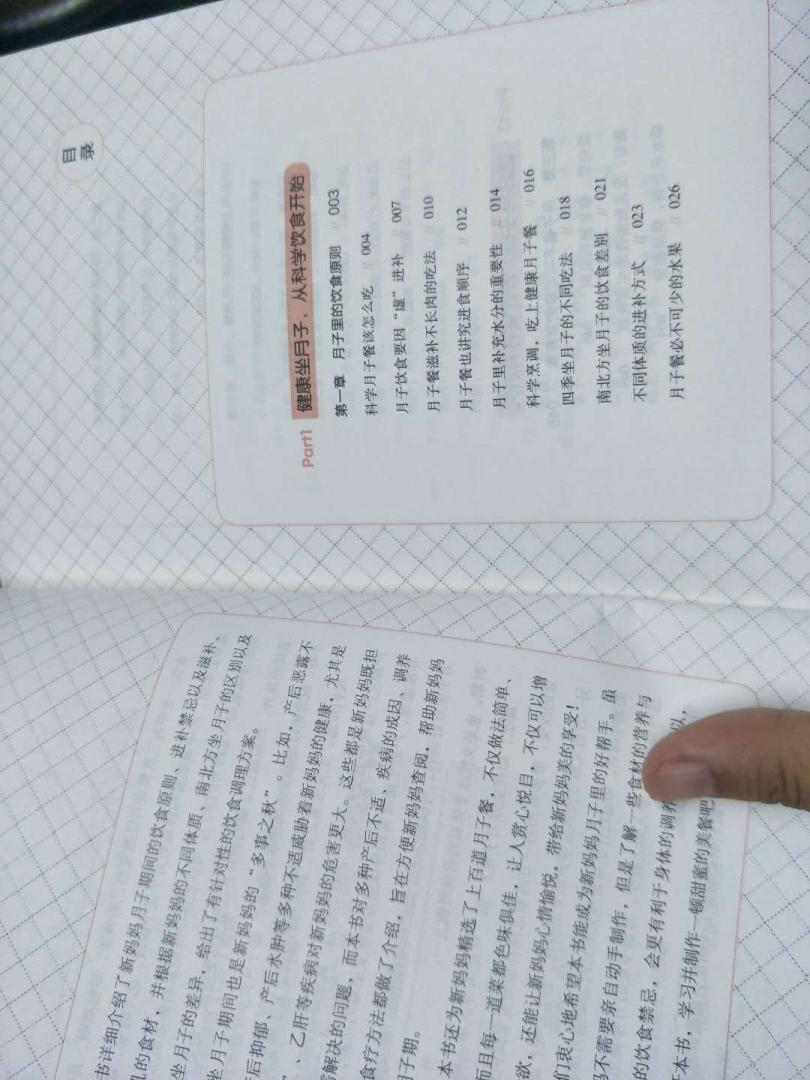 书详细介绍了新妈妈月子期间的饮食原则、进补禁忌以及滋补、
乳的食材，并根据新妈妈的不同体质、南北方坐月子的区别以及
坐月子的差异，给出了有针对性的饮食调理方案。
坐月子期间也是新妈妈的“多事之秋”。比如，产后恶露不
后抑郁、产后水肿等多种不适威胁着新妈妈的健康，尤其是
”、乙肝等疾病对新妈妈的危害更大。这些都是新妈妈既担
解决的问题，而本书对多种产后不适、疾病的成因、调养
食疗方法都做了介绍，旨在方便新妈妈查阅，帮助新妈妈
月子期。
本书还为新妈妈精选了上百道月子餐，不仅做法简单、
而且每一道菜都色味俱佳，让人赏心悦目，不仅可以增
欲，还能让新妈妈心情愉悦，带给新妈妈美的享受！
们衷心地希望本书能成为新妈妈月子里的好帮手。虽
不需要亲自动手制作，但是了解一些食材的营养与
的饮食禁忌，会更有利于身体的调养
本书，学习并制作一顿甜蜜的美餐吧
以，
目录
Part1 健康坐月子，从科学饮食开始
第一章 月子里的饮食原则 // 003
科学月子餐该怎么吃 // 004
月子饮食要因“虚”进补 // 007
月子餐滋补不长肉的吃法 // 010
月子餐也讲究进食顺序 // 012
月子里补充水分的重要性 // 014
科学烹调，吃上健康月子餐 // 016
四季坐月子的不同吃法 // 018
南北方坐月子的饮食差别 // 021
不同体质的进补方式 // 023
月子餐必不可少的水果 // 026